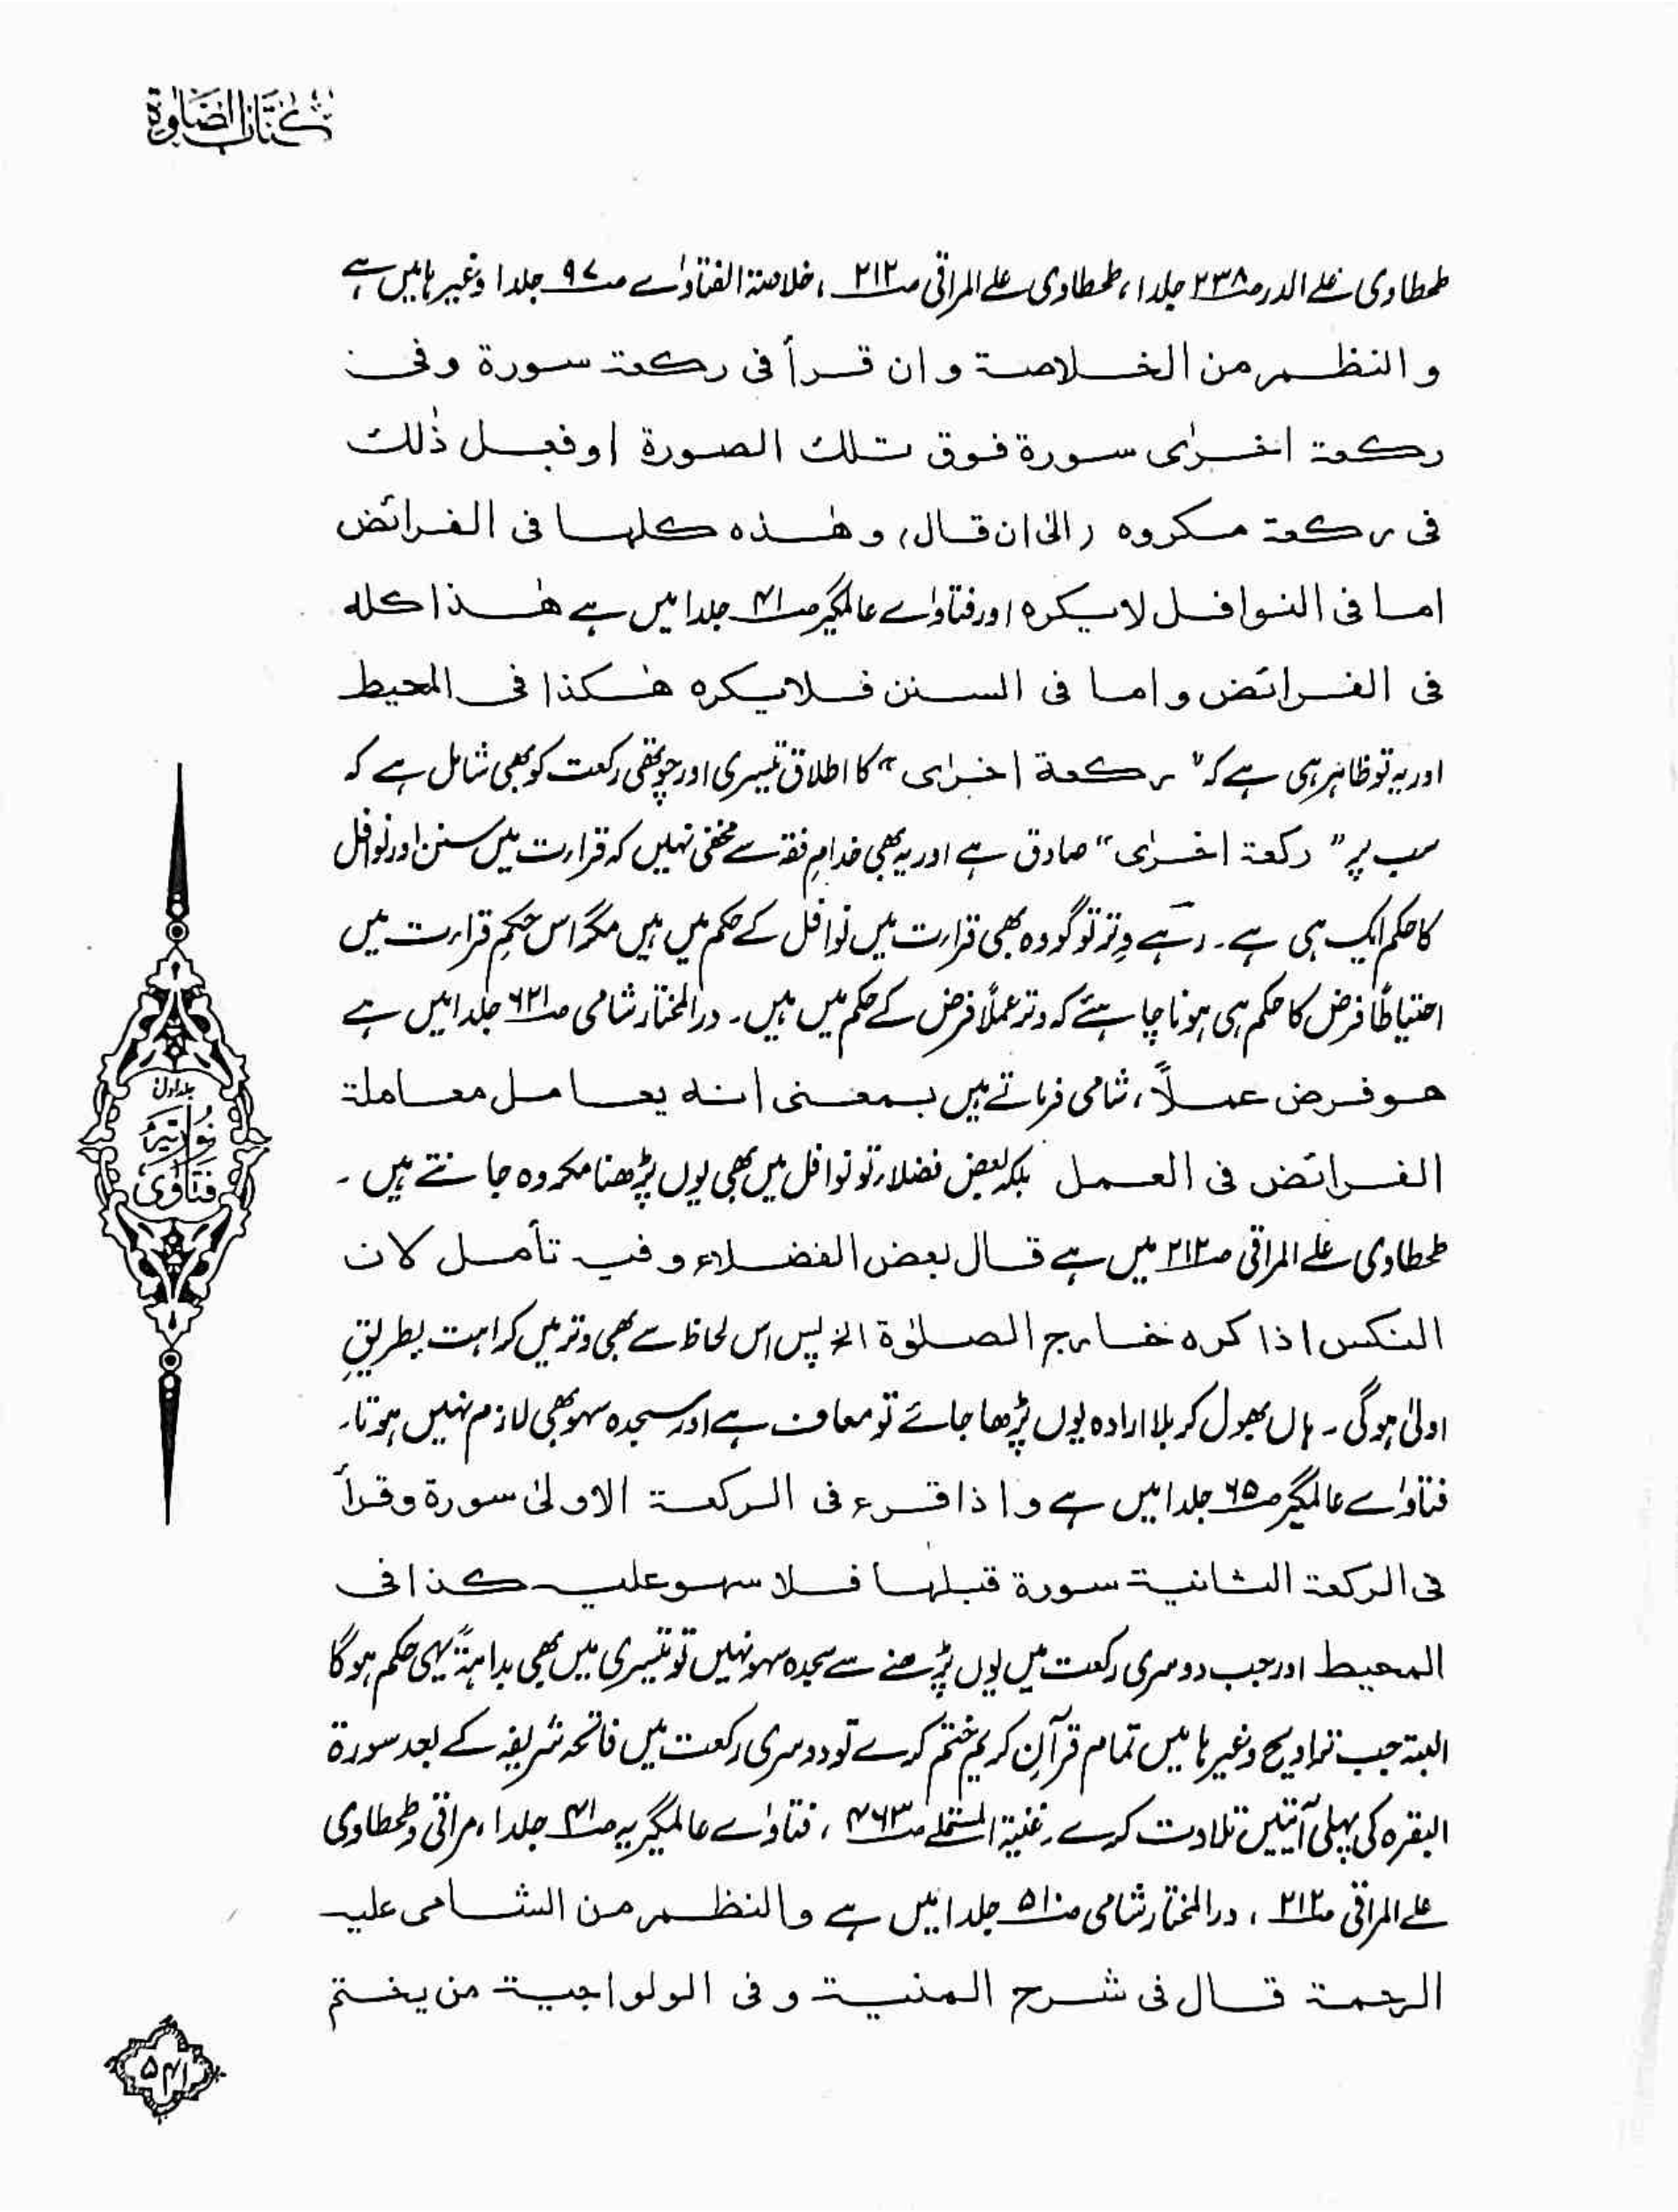 كتاب الصلوة
طحطاوی علے الدر صـ۲۳۸ جلد ا، طحطاوی علے المراقی صـ۲۱۲، خلاصۃ الفتاوٰے صـ۹۷ جلد ا وغیرہا میں ہے
و النظم من الخلاصة و ان قرأ فی رکعة سورة وفی
رکعة اخرٰی سورة فوق تلك الصورة اوفعل ذٰلك
فی رکعة مکروه (الیٰ ان قال) و هٰذه کلها فی الفرائض
اما فی النوافل لایکره اور فتاوٰے عالمگیر صـ۴۱ جلد ا میں ہے هٰذا کله
فی الفرائض و اما فی السنن فلا یکره هٰکذا فی المحیط
اور یہ تو ظاہر ہی ہے کہ "رکعة اخرٰی" کا اطلاق تیسری اور چوتھی رکعت کو بھی شامل ہے کہ
سب پر "رکعة اخرٰی" صادق ہے اور یہ بھی خدامِ فقہ سے مخفی نہیں کہ قراءت میں سنن اور نوافل
کا حکم ایک ہی ہے۔ رہے وِتر تو گو وہ بھی قراءت میں نوافل کے حکم میں ہیں مگر اس حکمِ قراءت میں
احتیاطًا فرض کا حکم ہی ہونا چاہئے کہ وتر عملًا فرض کے حکم میں ہیں۔ درالمختار شامی صـ۶۲۱ جلد ا میں ہے
هو فرض عملاً، شامی فرماتے ہیں بمعنی انه یعامل معاملة
الفرائض فی العمل بلکہ بعض فضلاء تو نوافل میں بھی یوں پڑھنا مکروہ جانتے ہیں۔
طحطاوی علے المراقی صـ۲۱۲ میں ہے قال بعض الفضلاء و فیه تأمل لان
النکس اذا کره خارج الصلوٰة الخ پس اس لحاظ سے بھی وتر میں کراہت بطریقِ
اولیٰ ہوگی۔ ہاں بھول کر بلا ارادہ یوں پڑھا جائے تو معاف ہے اور سجدہ سہو بھی لازم نہیں ہوتا۔
فتاوٰے عالمگیر صـ۶۵ جلد ا میں ہے و اذا قرء فی الرکعة الاولیٰ سورة وقرأ
فی الرکعة الثانیة سورة قبلها فلا سهو علیه کذا فی
المحیط اور جب دوسری رکعت میں یوں پڑھنے سے سجدہ سہو نہیں تو تیسری میں بھی بداہۃً یہی حکم ہوگا
البتہ جب تراویح وغیرہا میں تمام قرآنِ کریم ختم کرے تو دوسری رکعت میں فاتحہ شریفہ کے بعد سورۃ
البقرہ کی پہلی آیتیں تلاوت کرے۔ غنیۃ المستملے صـ۴۶۳، فتاوٰے عالمگیریہ صـ۴۱ جلد ا، مراقی و طحطاوی
علے المراقی صـ۲۱۲، درالمختار شامی صـ۵۱۰ جلد ا میں ہے والنظم من الشامی علیه
الرحمة قال فی شرح المنیة و فی الولواجیة من یختم
جلد اول
نوریہ
فتاوٰی
۵۴۱